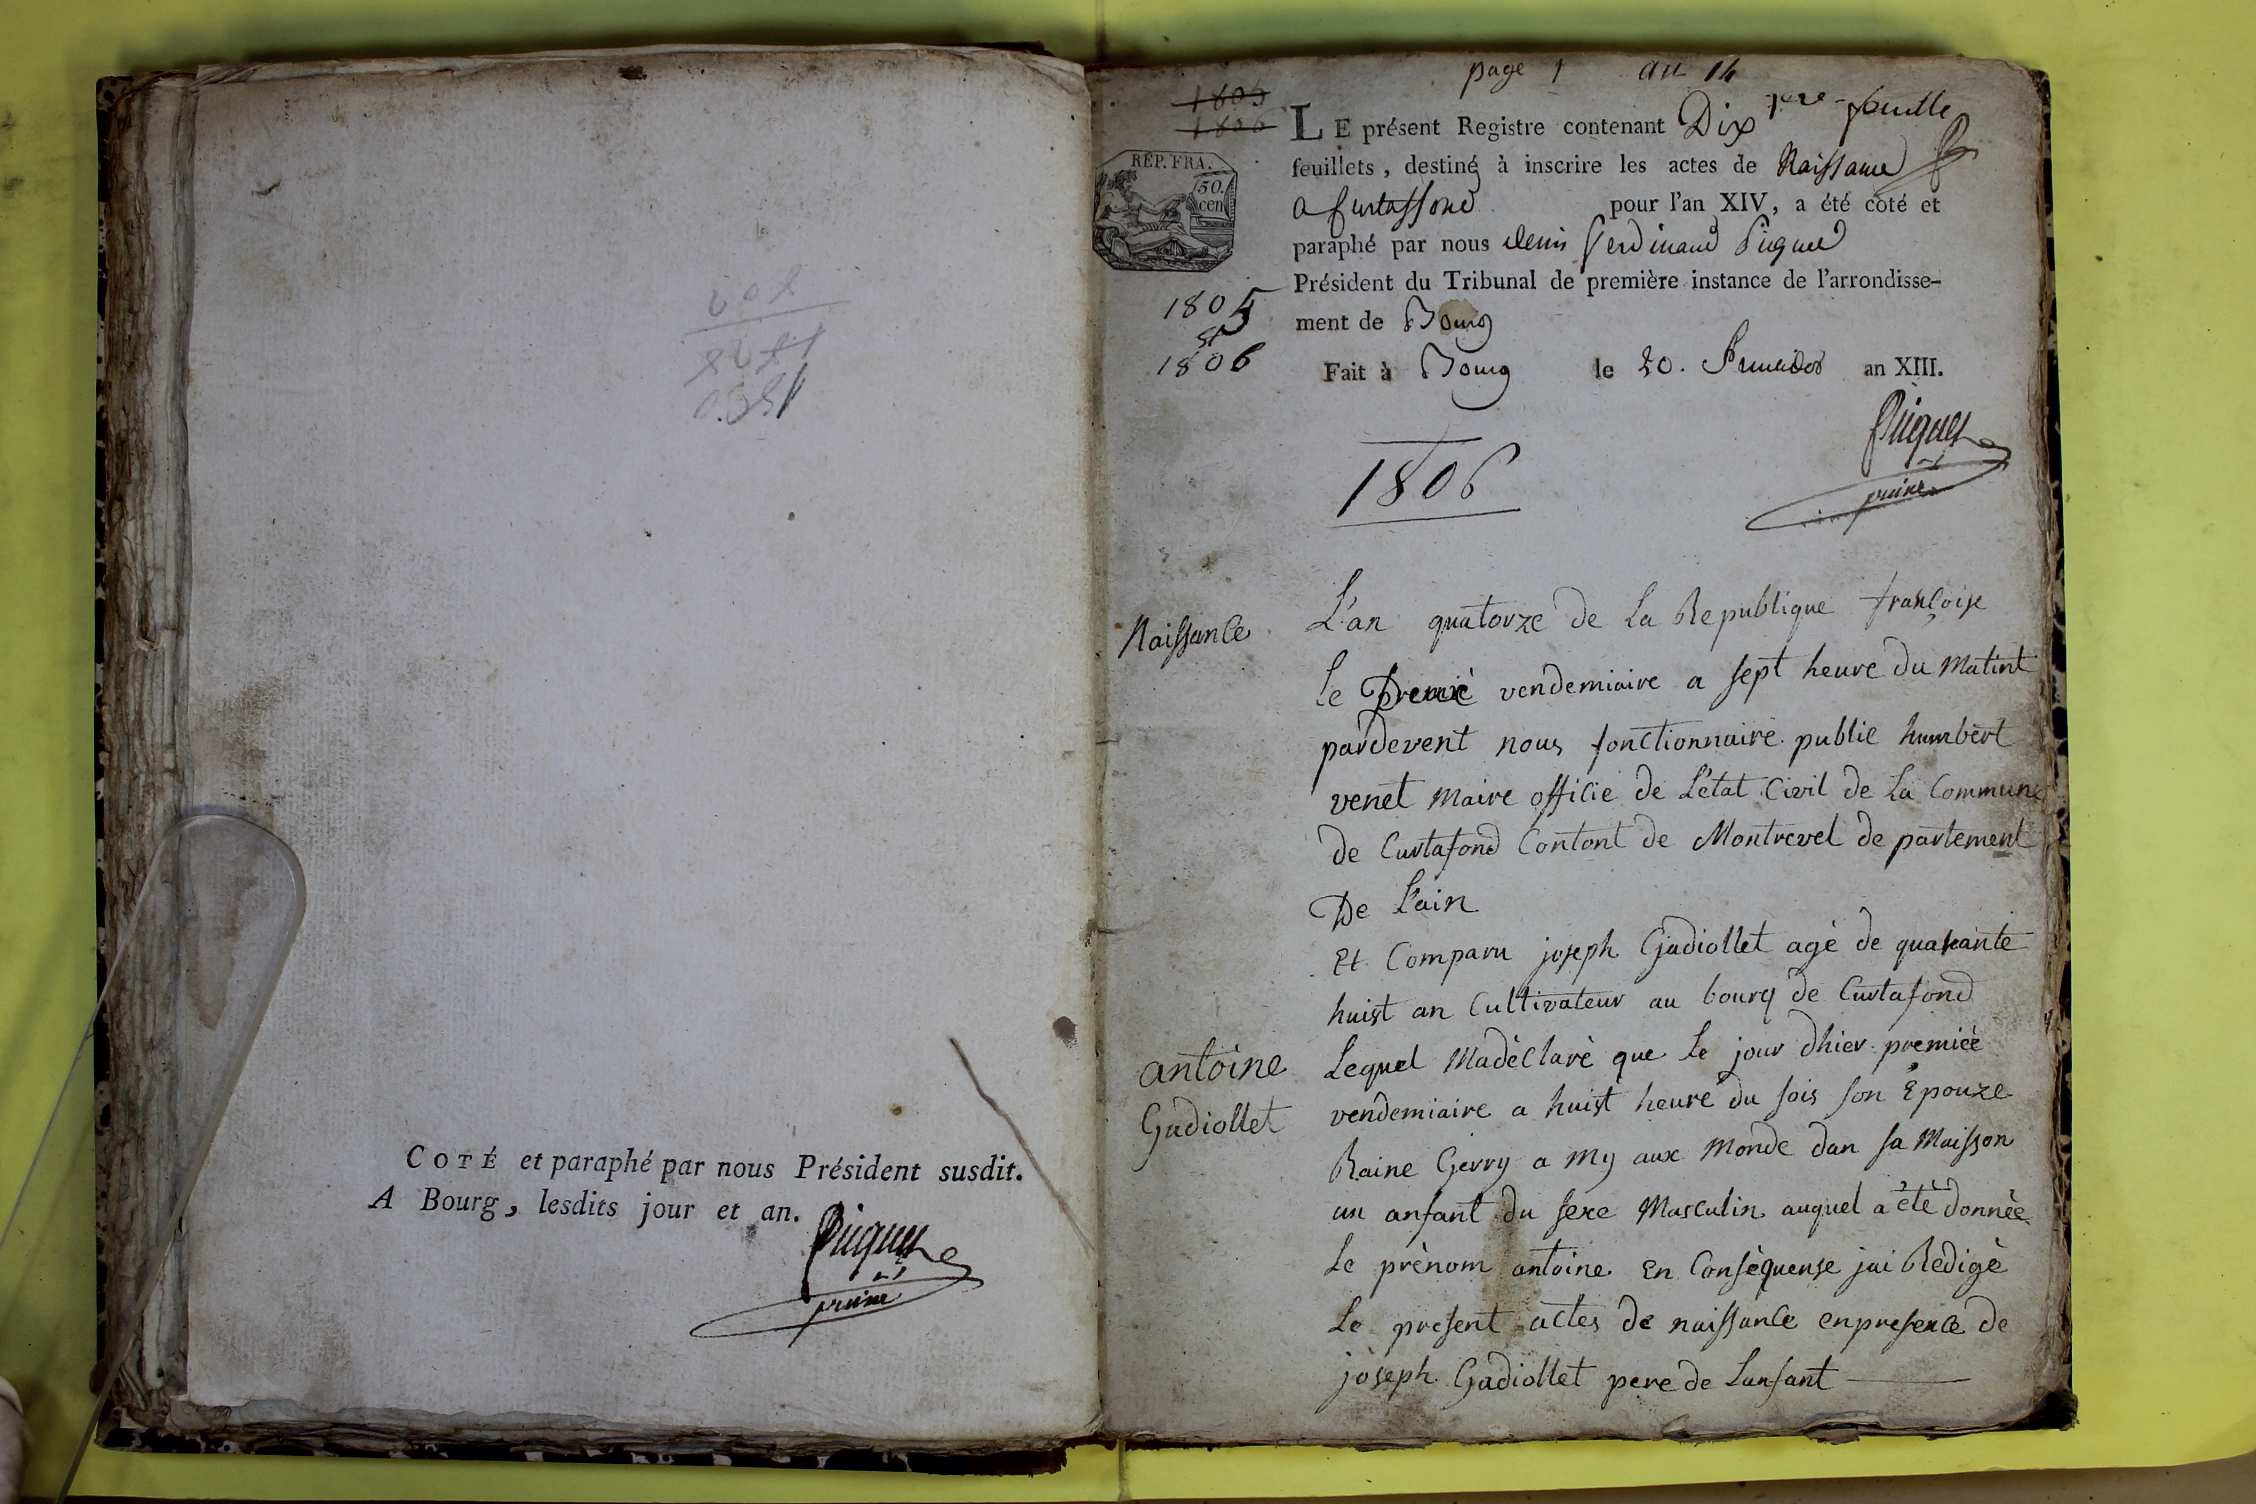 COTÉ et paraphé par nous Président susdit.
A Bourg, lesdits jour et an.
page 1 an 14
1805
1806
1ere feuille
LE présent Registre contenant Dix
feuillets, destiné à inscrire les actes de Naissance
RÉP. FRA.
50.
cen
a Curtaffond pour l'an XIV, a été coté et
paraphé par nous denis ferdinand Picquet
Président du Tribunal de première instance de l'arrondisse-
ment de Bourg
1805
et
1806
Fait à Bourg le 20. Fructidor an XIII.
Picquet
1806
Naissance
L'an quatorze de La Republique françoise
le vendemiaire a sept heure du Matint
pardevent nous fonctionnaire public humbert
venet Maire officié de L'état Civil de La Commune
de Curtafond Contont de Montrevel de partement
De L'ain
Et Comparu joseph Gadiollet agé de quarante
huist an Cultivateur au bourg de Curtafond
antoine
Gadiollet
Lequel Madèclarè que le jour dhier premiéé
vendemiaire a huist heure du sois son Epouze
Raine Gerry a My aux Monde dan sa Maisson
un anfant du sexe Masculin auquel a été donnée
Le prènom antoine En Consèquense jai Redigè
Le present actes de naissance enpresence de
joseph Gadiollet pere de Lanfant